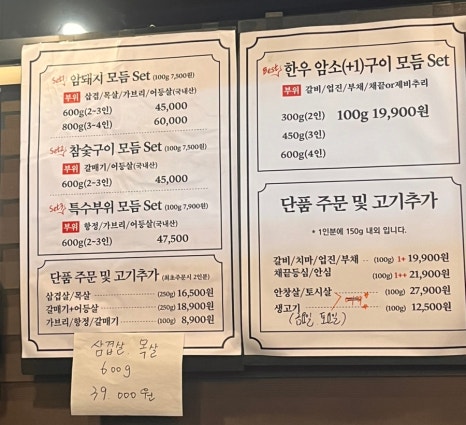 Set1 암돼지 모듬 Set (100g 7,500원)
부위 삼겹/목살/가브리/어등살(국내산)
600g(2~3인) 45,000
800g(3~4인) 60,000
Set2 참숯구이 모듬 Set (100g 7,500원)
부위 갈매기/어등살(국내산)
600g(2~3인) 45,000
Set3 특수부위 모듬 Set (100g 7,900원)
부위 항정/가브리/어등살(국내산)
600g(2~3인) 47,500
단품 주문 및 고기추가 (최초주문시 2인분)
삼겹살/목살 (250g) 16,500원
갈매기+어등살 (250g) 18,900원
가브리/항정/갈매기 (100g) 8,900원
삼겹살 목살
600g
39 000원
Best 한우 암소(+1)구이 모듬 Set
부위 갈비/업진/부채/채끝or제비추리
300g(2인) 100g 19,900원
450g(3인)
600g(4인)
단품 주문 및 고기추가
* 1인분에 150g 내외 입니다.
갈비/치마/업진/부채 (100g) 1+ 19,900원
채끝등심/안심 (100g) 1++ 21,900원
안창살/토시살 (100g) 27,900원
생고기 (100g) 12,500원